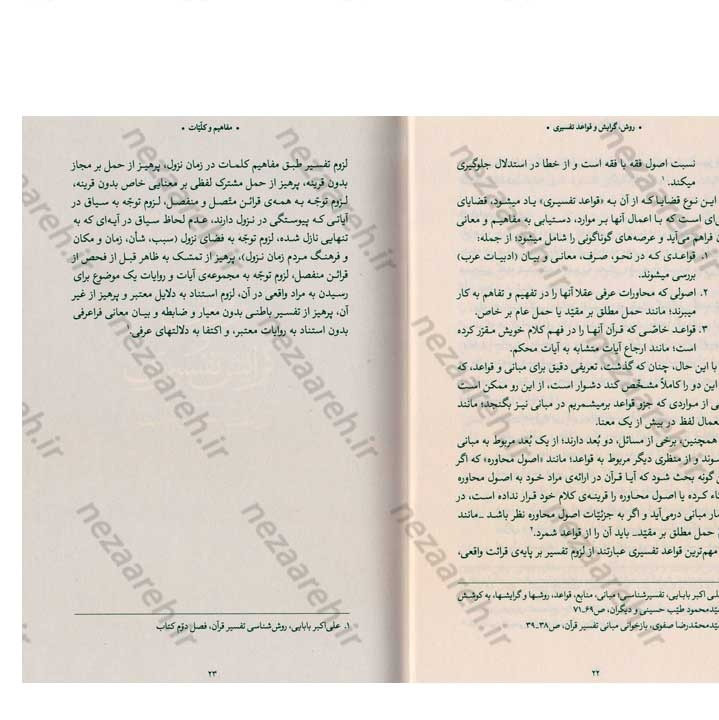 • روش، گرایش و قواعد تفسیری •
نسبت اصول فقه با فقه است و از خطا در استدلال جلوگیری
میکند. ۱
این نوع قضایا که از آن به «قواعد تفسیری» یاد میشود، قضایای
است که با اعمال آنها بر موارد، دستیابی به مفاهیم و معانی
فراهم می‌آید و عرصه‌های گوناگونی را شامل میشود؛ از جمله:
۱. قواعدی که در نحو، صرف، معانی و بیان (ادبیات عرب)
بررسی میشوند.
۲. اصولی که محاورات عرفی عقلا آنها را در تفهیم و تفاهم به کار
میبرند؛ مانند حمل مطلق بر مقیّد یا حمل عام بر خاص.
۳. قواعد خاصّی که قرآن آنها را در فهم کلام خویش مقرّر کرده
است؛ مانند ارجاع آیات متشابه به آیات محکم.
با این حال، چنان که گذشت، تعریفی دقیق برای مبانی و قواعد، که
این دو را کاملاً مشخّص کند دشوار است، از این رو ممکن است
از مواردی که جزو قواعد برمیشمریم در مبانی نیز بگنجد؛ مانند
لفظ در بیش از یک معنا.
همچنین، برخی از مسائل، دو بُعد دارند؛ از یک بعد مربوط به مبانی
و از منظری دیگر مربوط به قواعد؛ مانند «اصول محاوره» که اگر
گونه بحث شود که آیا قرآن در ارائه‌ی مراد خود به اصول محاوره
کرده یا اصول محاوره را قرینه‌ی کلام خود قرار نداده است، در
مبانی درمی‌آید و اگر به جزئیّات اصول محاوره نظر باشد ـ مانند
حمل مطلق بر مقیّد ـ باید آن را از قواعد شمرد.۲
مهم‌ترین قواعد تفسیری عبارتند از لزوم تفسیر بر پایه‌ی قرائت واقعی،
علی اکبر بابایی، تفسیرشناسی؛ مبانی، منابع، قواعد، روشها و گرایشها، به کوشش
محمود طیّب حسینی و دیگران، ص۶۹ـ۷۱
محمّدرضا صفوی، بازخوانی مبانی تفسیر قرآن، ص۳۸ـ۳۹
۲۲
• مفاهیم و کلّیّات •
لزوم تفسیر طبق مفاهیم کلمات در زمان نزول، پرهیز از حمل بر مجاز
بدون قرینه، پرهیز از حمل مشترک لفظی بر معنایی خاص بدون قرینه،
لزوم توجّه به همه‌ی قرائن متّصل و منفصل، لزوم توجّه به سیاق در
آیاتی که پیوستگی در نزول دارند، عدم لحاظ سیاق در آیه‌ای که به
تنهایی نازل شده، لزوم توجّه به فضای نزول (سبب، شأن، زمان و مکان
و فرهنگ مردم زمان نزول)، پرهیز از تمسک به ظاهر قبل از فحص از
قرائن منفصل، لزوم توجّه به مجموعه‌ی آیات و روایات یک موضوع برای
رسیدن به مراد واقعی در آن، لزوم استناد به دلایل معتبر و پرهیز از غیر
آن، پرهیز از تفسیر باطنی بدون معیار و ضابطه و بیان معانی فراعرفی
بدون استناد به روایات معتبر، و اکتفا به دلالتهای عرفی.۱
۱. علی‌اکبر بابایی، روش‌شناسی تفسیر قرآن، فصل دوّم کتاب
۲۳
nezaareh.ir